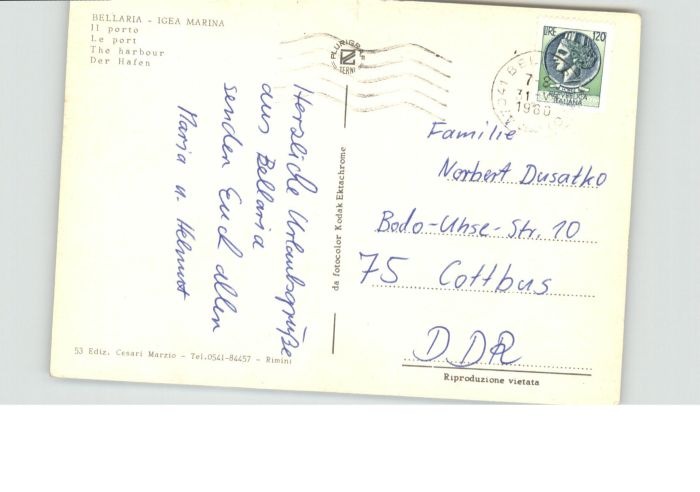 BELLARIA - IGEA MARINA
Il porto
Le port
The harbour
Der Hafen
PLURIGRAF
TERNI
LIRE 120
REPVBBLICA
ITALIANA
7-8
31
1980
Herzliche Urlaubsgrüße
aus Bellaria
senden Euch allen
Maria u. Helmut
da fotocolor Kodak Ektachrome
Familie
Norbert Dusatko
Bodo-Uhse-Str. 10
75 Cottbus
DDR
53 Ediz. Cesari Marzio - Tel.0541-84457 - Rimini
Riproduzione vietata